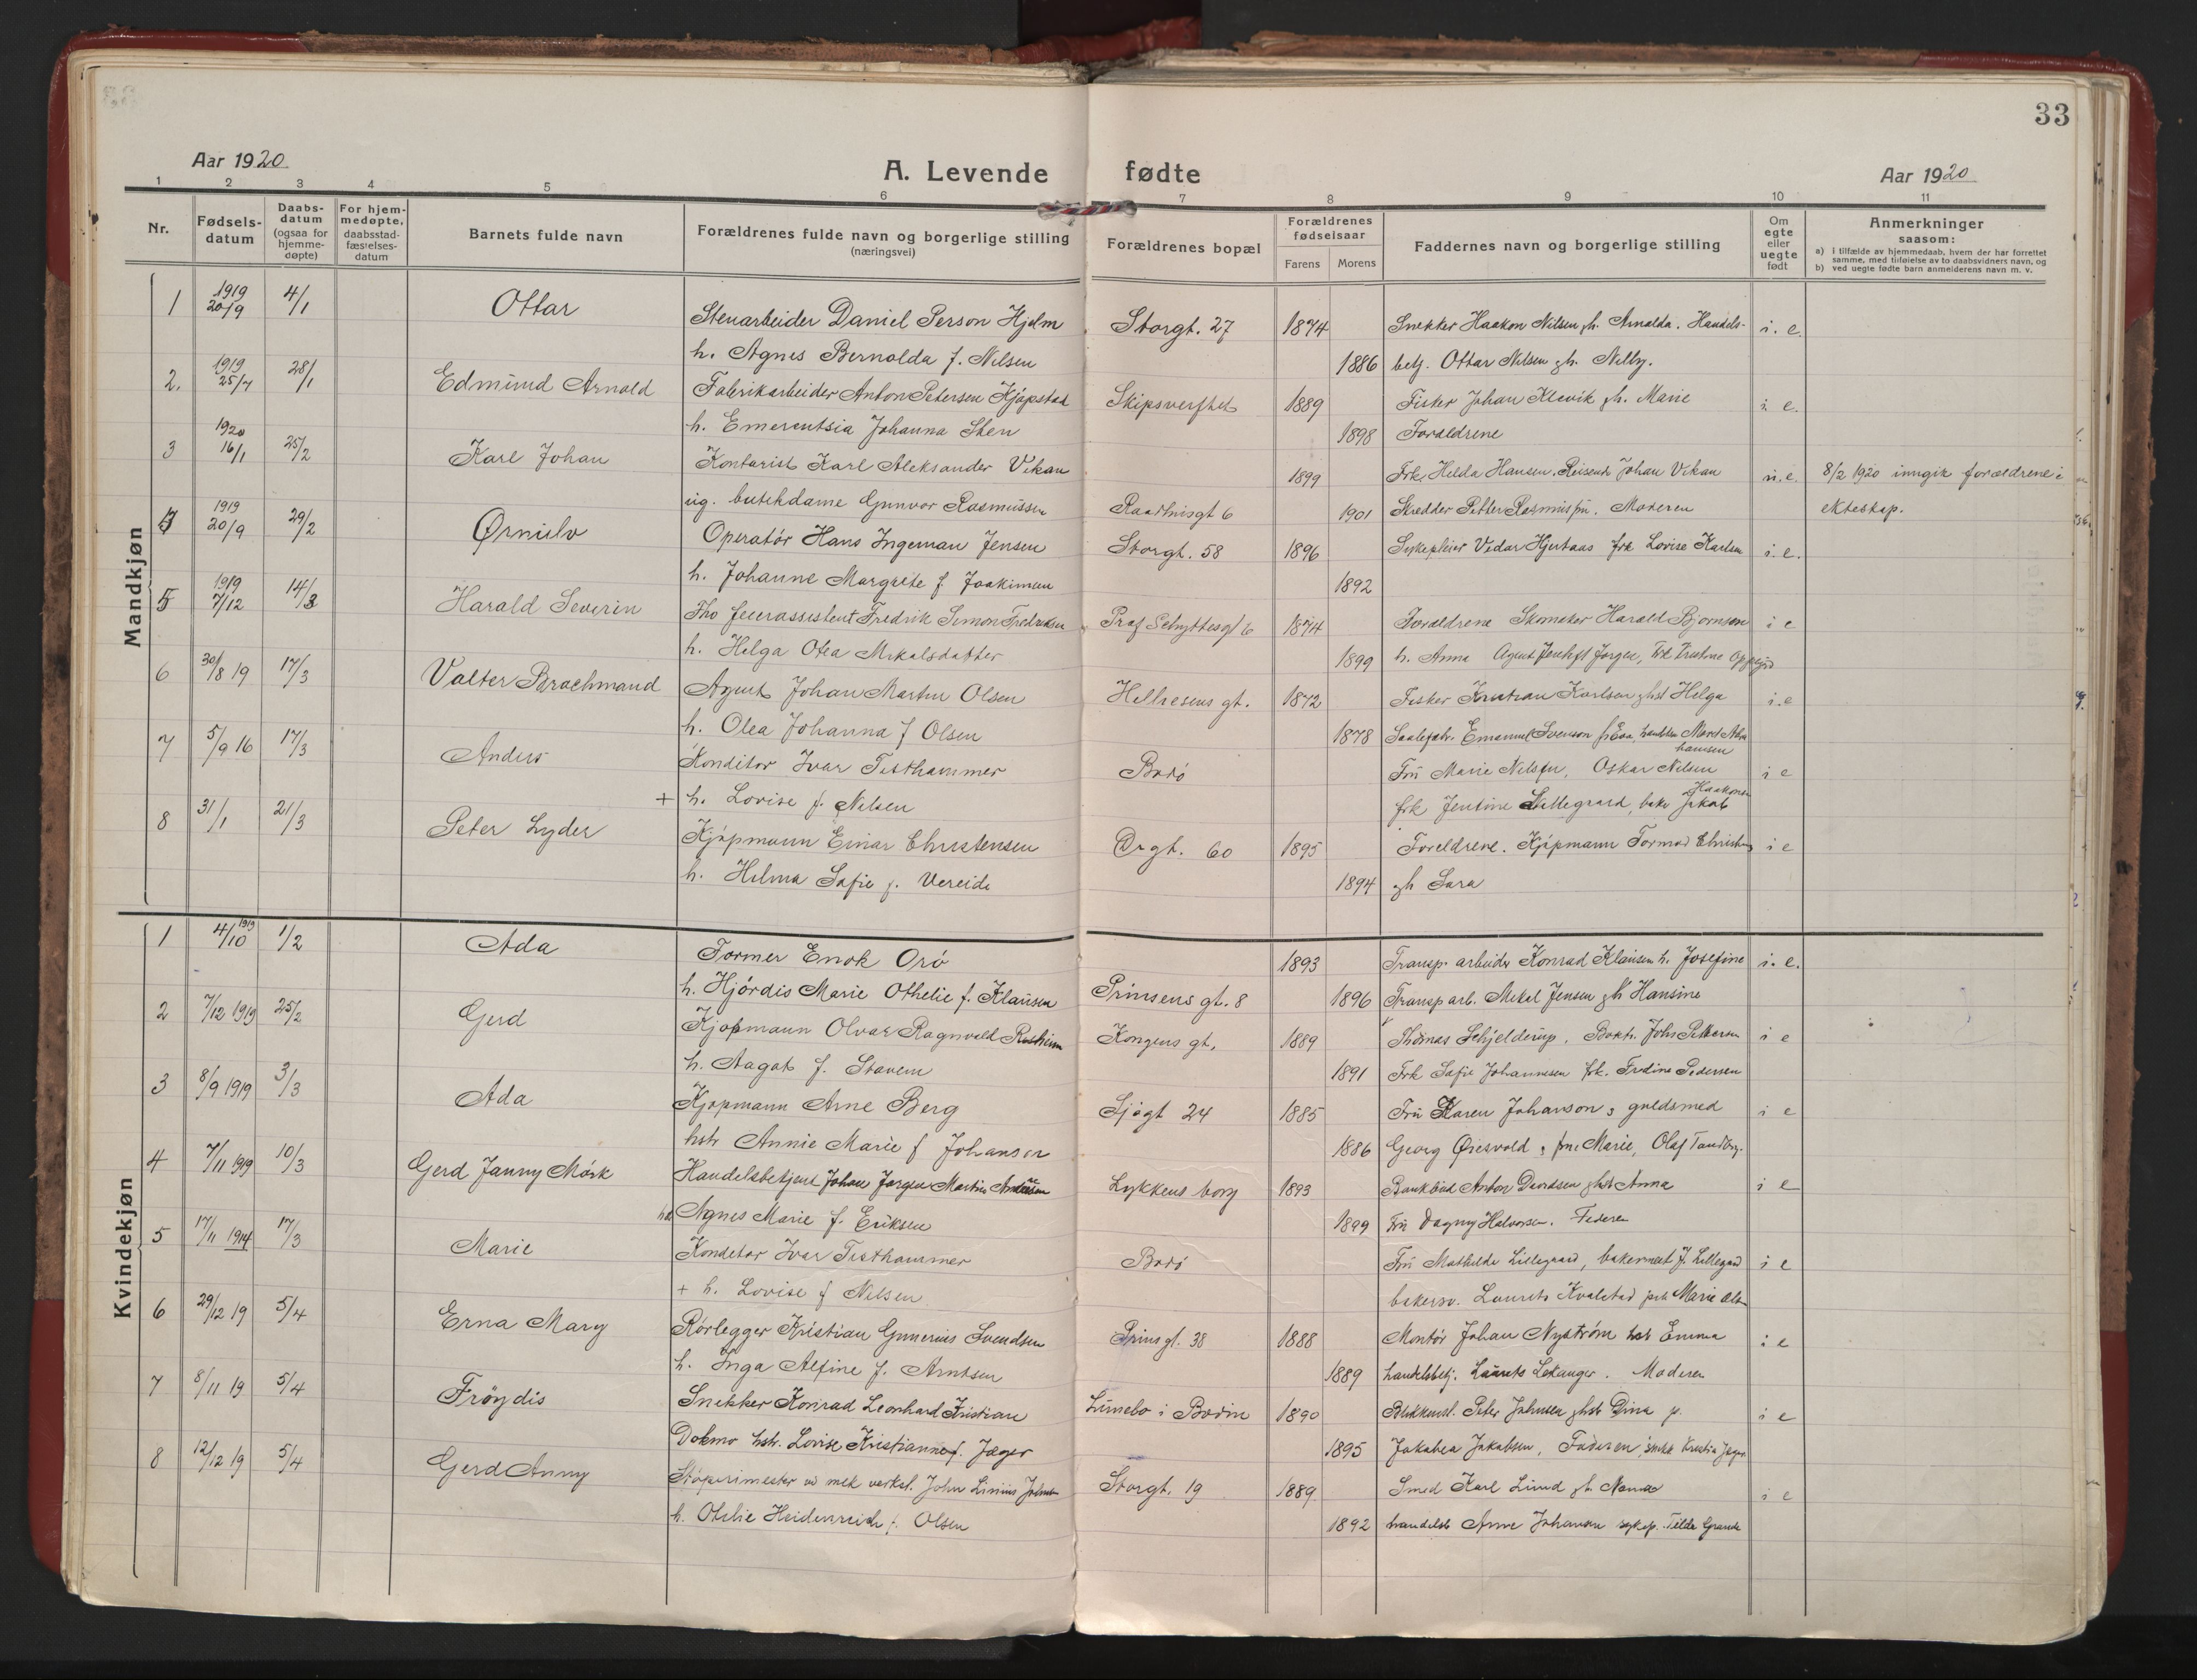 33
Aar 1920
A. Levende fødte
Aar 1920
1 2 3 4 5 6 7 8 9 10 11
Nr.
Fødsels-datum
Daabs-datum (ogsaa for hjemme-døpte)
For hjem-medøpte, daabsstad-fæstelses-datum
Barnets fulde navn
Forældrenes fulde navn og borgerlige stilling (næringsvei)
Forældrenes bopæl
Forældrenes fødselsaar
Farens Morens
Faddernes navn og borgerlige stilling
Om egte eller uegte født
Anmerkninger saasom:
a) i tilfælde av hjemmedaab, hvem der har forrettet samme, med tilføielse av to daabsvidners navn, og
b) ved uegte fødte barn anmelderens navn m. v.
Mandkjøn
1 1919 20/9 4/1 Ottar Stenarbeider Daniel Person Hjelm Storgt. 27 1874 Snekker Haakon Nilsen gh. Arnalda. Handels- i. e.
h. Agnes Bernalda f. Nilsen 1886 betj. Ottar Nilsen gh. Nelly.
2. 1919 25/7 28/1 Edmund Arnold Fabrikarbeider Anton Petersen Kjøpstad Skipsverftet 1889 Fisker Johan Klevik gh. Marie i. e.
h. Emerentsia Johanna Sten 1898 Foraldrene
3 1920 16/1 25/2 Karl Johan Kontorist Karl Aleksander Vikan 1899 Frk. Hilda Hansen. Reisende Johan Vikan u. e. 8/2 1920 inngik forældrene i
ug. butikdame Gunvor Rasmussen Raadhusgt 6 1901 Skredder Petter Rasmussen. Moderen ekteskap.
4 1919 20/9 29/2 Ørnulv Operatør Hans Ingeman Jensen Storgt. 58 1896 Sykepleier Vedar Hjertaas frk Lovise Karlsen i. e.
h. Johanne Margrete f. Joakimsen 1892
5 1919 7/12 14/3 Harald Severin Fredrik Simon Fredriksen Prof Schyttesgt 6 1874 Foraldrene Skomaker Harald Bjørnson i e
h. Helga Otea Mikalsdatter 1899 h. Anna Agent
6 30/8 19 17/3 Valter Brochmand Agent Johan Martin Olsen Hellresens gt. 1872 Fisker Kristian Karlsen ghst Helga i. e
h. Olea Johanna f Olsen 1878 Emanuel Svenson
7 5/9 16 17/3 Anders Konditor Ivar Testhammer Bodø Fru Marie Nilsen, Oskar Nilsen i e
+ h. Lovise f. Nilsen frk Jentine Lillegaard, bake Jakob Haakonsen
8 31/1 21/3 Peter Lyder Kjøpmann Einar Christensen Ørgt. 60 1895 Foreldrene. Kjøpmann Tormod Christens i e
h. Helma Sofie f. Vereide 1894 gh Sara
Kvindekjøn
1 4/10 1919 1/2 Ada Former Enok Orø 1893 Transp. arbeider Konrad Klausen h. Josefine i. e.
h. Hjørdis Marie Othelie f. Klausen Prinsens gt. 8 1896 Transp arb. Mekal Jensen gh Hansine
2 7/12 1919 25/2 Gerd Kjøpmann Olvar Ragnvald Kongens gt. 1889 Thomas Schjelderup, Boktr. Johs Pettersen i e
h. Aagot f. Stavem 1891 Frk Sofie Johannesen frk. Fredine Pedersen
3 8/9 1919 3/3 Ada Kjøpmann Arne Berg Sjøgt 24 1885 Fru Karen Johanson, guldsmed i e
hstr Annie Marie f Johanson 1886 Georg Øiesvold, fru Marie, Olaf Tandberg.
4 7/11 1919 10/3 Gerd Janny Mørk Handelsbetjent Johan Jørgen Martin Lykkens borg 1893 Bankbud Anton Davidsen ghst Anna i e
Agnes Marie f. Eriksen 1899 Fru Dagny Halvorsen. Federen
5 17/11 1914 17/3 Marie Konditor Ivar Testhammer Bodø Fru Mathilde Lillegaard, bakermest J. Lillegaard i e
+ h. Lovise f Nilsen bakersv. Laurits Kvalstad
6 29/12 19 5/4 Erna Mary Rørlegger Kristian Gunerius Svendsen Prinsgt. 38 1888 Montør Johan Nystrøm hst Emma i e
h. Inga Alfine f. Arntsen 1889 handelsbetj. Laurits Lekanger. Moderen
7 8/11 19 5/4 Frøydis Snekker Konrad Leonhard Kristian Limebo i Bodin 1890 Blikkensl. Peter Johnsen ghst Dina i e
Dokmo hstr. Lovise Kristianne f. Jæger 1895 Jakobea Jakobsen, Faderen
8 12/12 19 5/4 Gerd Anny Støperimester ve mek verkst. John Linius Johnsen Storgt. 19 1889 Smed Karl Lund gh Nanna i e
h. Otelie Heidenreich f. Olsen 1892 handelsb Arne Johansen sykep. Tilda Grande